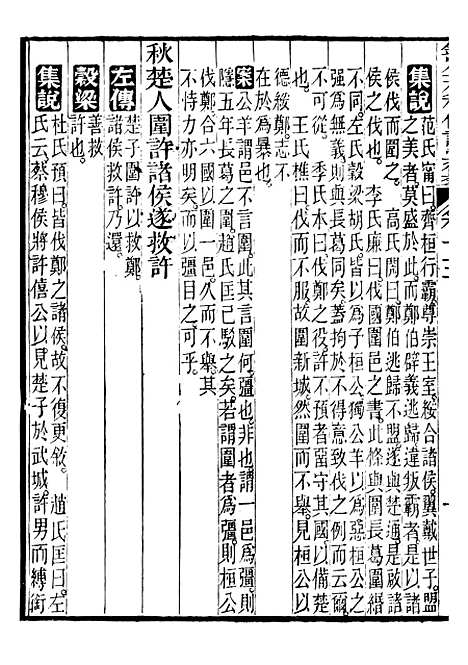 集說
范氏甯曰齊桓行霸尊崇王室綏合諸侯翼戴世子盟
之美者莫盛於此而鄭伯辟義逃歸違叛霸者是以諸
侯伐而圍之 高氏閌曰鄭伯逃歸不盟遂與楚通是啟諸
侯之伐也 李氏廉曰伐國圍邑之書此條與圍長葛圍緡
不同左氏穀梁胡氏皆以為子桓公獨公羊以為惡桓公之
強為無義則與長葛同矣蓋拘於不得意致伐之例而云爾
不可從 季氏本曰伐鄭之役許不與者畱守其國以備楚
也 王氏樵曰伐鄭而不服故圍新城然圍而不舉見桓公
德綏鄭志不
在於為暴也
案公羊謂邑不言圍此其言圍何彊也非也謂一邑為彊則
隱五年長葛之圍趙氏匡已駁之矣若謂圍者為彊則桓公
伐鄭合六國以圍一邑久而不舉其
不恃力亦明矣而以圍目之可乎
秋楚人圍許諸侯遂救許
左傳
楚子圍許以救鄭
諸侯救許乃還
穀梁
善救
許也
集說
杜氏預曰皆伐鄭之諸侯故不復更敘 趙氏匡曰左
氏云蔡穆侯將許僖公以見楚子於武城許男而縛銜